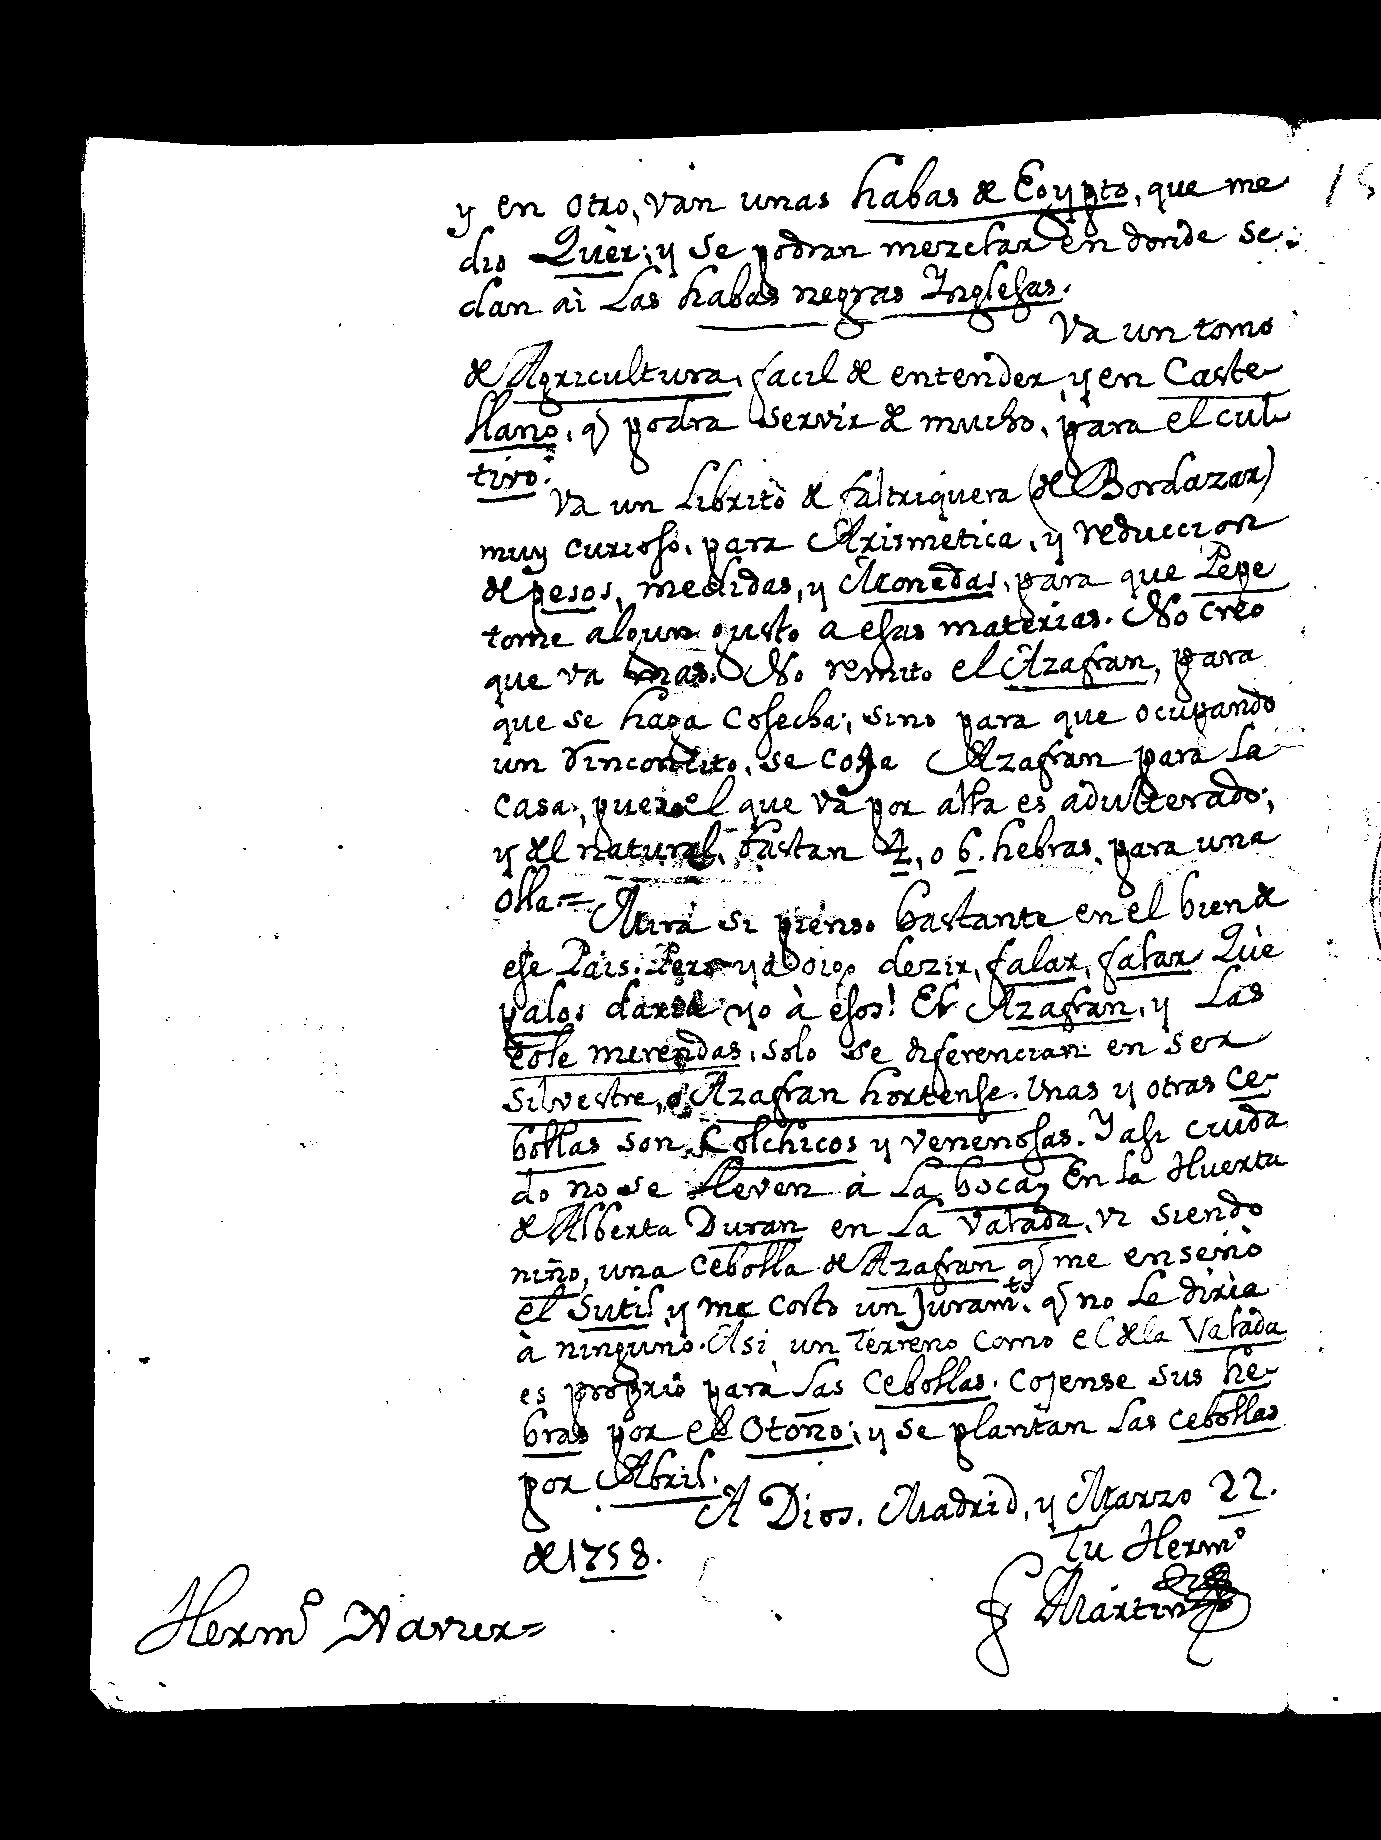 y en otro, van unas habas de Egypto, que me
dio Quèr; y se podran mezclar en donde se
dan ai las habas negras Ynglesas.
Va un tomo
de Agricultura, facil de entender, y en Caste
llano, q podra servir de mucho, para el cul
tivo.
Va un Librito de faltriquera (de Bordazar)
muy curioso, para Arismetica, y reduccion
de pesos, medidas, y Monedas, para que Pepe
tome algun gusto a esas materias. No creo
que va mas. No remito el Azafran, para
que se haga Cosecha; sino para que ocupando
un Rinconcito, se coja Azafran para la
Casa; pues el que va por allà es adulterado;
y del natural, bastan 4, o 6. hebras, para una
olla=
Mira si pienso bastante en el bien de
ese Pais. Pero ya oigo dezir, falar, falar Què
palos daria yo à esos! El Azafran, y Las
tole merendas, solo se diferencian en ser
Silvestre, o Azafran hortense. Unas y otras Ce-
bollas son Colchicos y venenosas. Y asi cuida
do no se lleven à La boca, En La Huerta
de Alberta Duran en La Valada, vi siendo
niño, una Cebolla de Azafran q me enseño
el Sutil, y me costò un Juramto. q no Le diria
à ninguno. Asi un Terreno como el de la Valada
es proprio para las Cebollas. Cojense sus he-
bras por el Otoño; y se plantan Las Cebollas
por Abril.
A Dios. Madrid, y Marzo 22.
de 1758.
Tu Hermo
Fr Martin
Hermo Xavier=
15